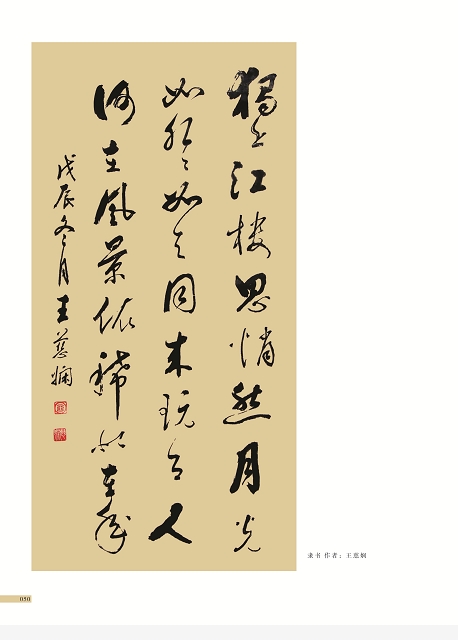 獨上江樓思悄然月光
如水〻如天同来玩月人
何在風景依稀似去年
戊辰冬月王慈嫻
隶书 作者：王慈娴
050